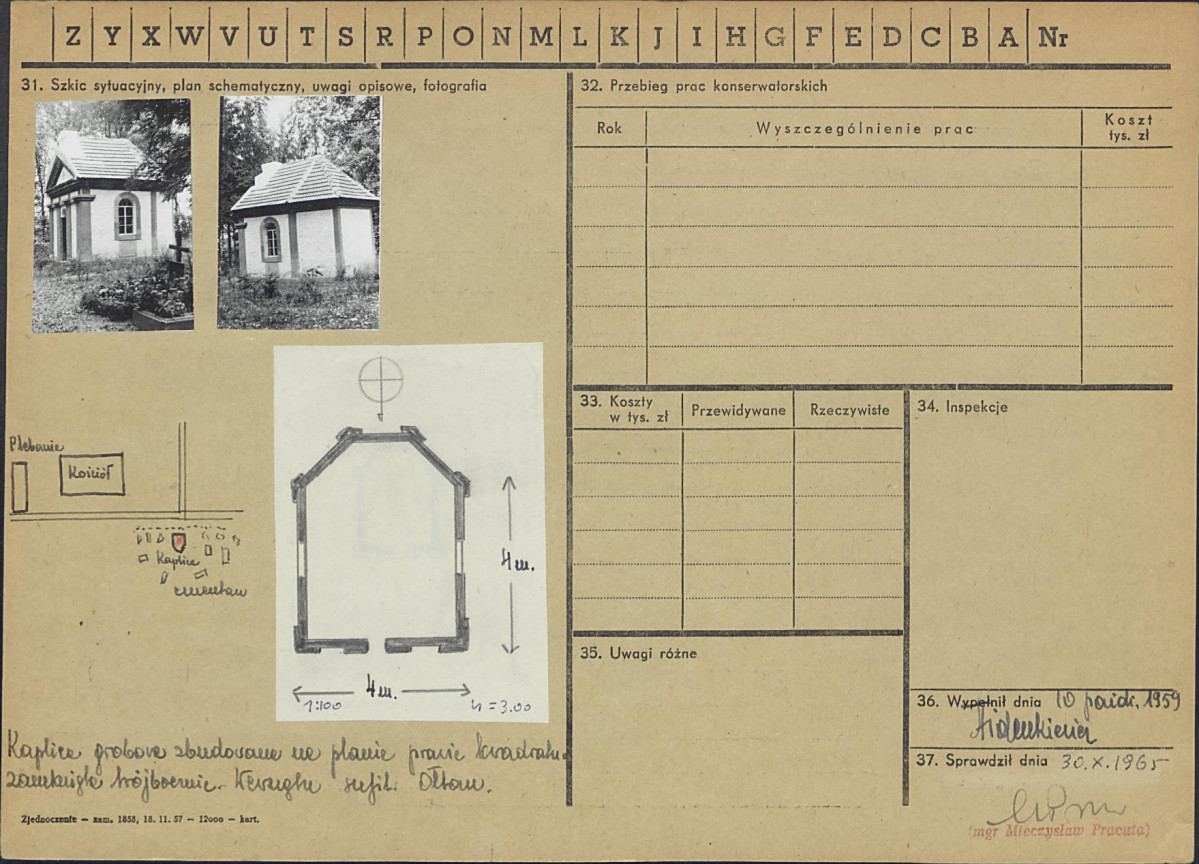 Z Y X W V U T S R P O N M L K J I H G F E D C B A Nr
31. Szkic sytuacyjny, plan schematyczny, uwagi opisowe, fotografia
Plebania
Kościół
Kaplica
cmentarz
4 m.
4 m.
1:100
h = 3.00
Kaplica grobowa zbudowana na planie prawie kwadratu
zamknięta trójbocznie. Wewnątrz sufit. Ołtarz.
Zjednoczenie – zam. 1858, 18. 11. 57 – 12000 – kart.
32. Przebieg prac konserwatorskich
Rok
Wyszczególnienie prac
Koszt
tys. zł
33. Koszty
w tys. zł
Przewidywane
Rzeczywiste
34. Inspekcje
35. Uwagi różne
36. Wypełnił dnia 10 paźdz. 1959
37. Sprawdził dnia 30.X.1965
(mgr Mieczysław Pracuta)